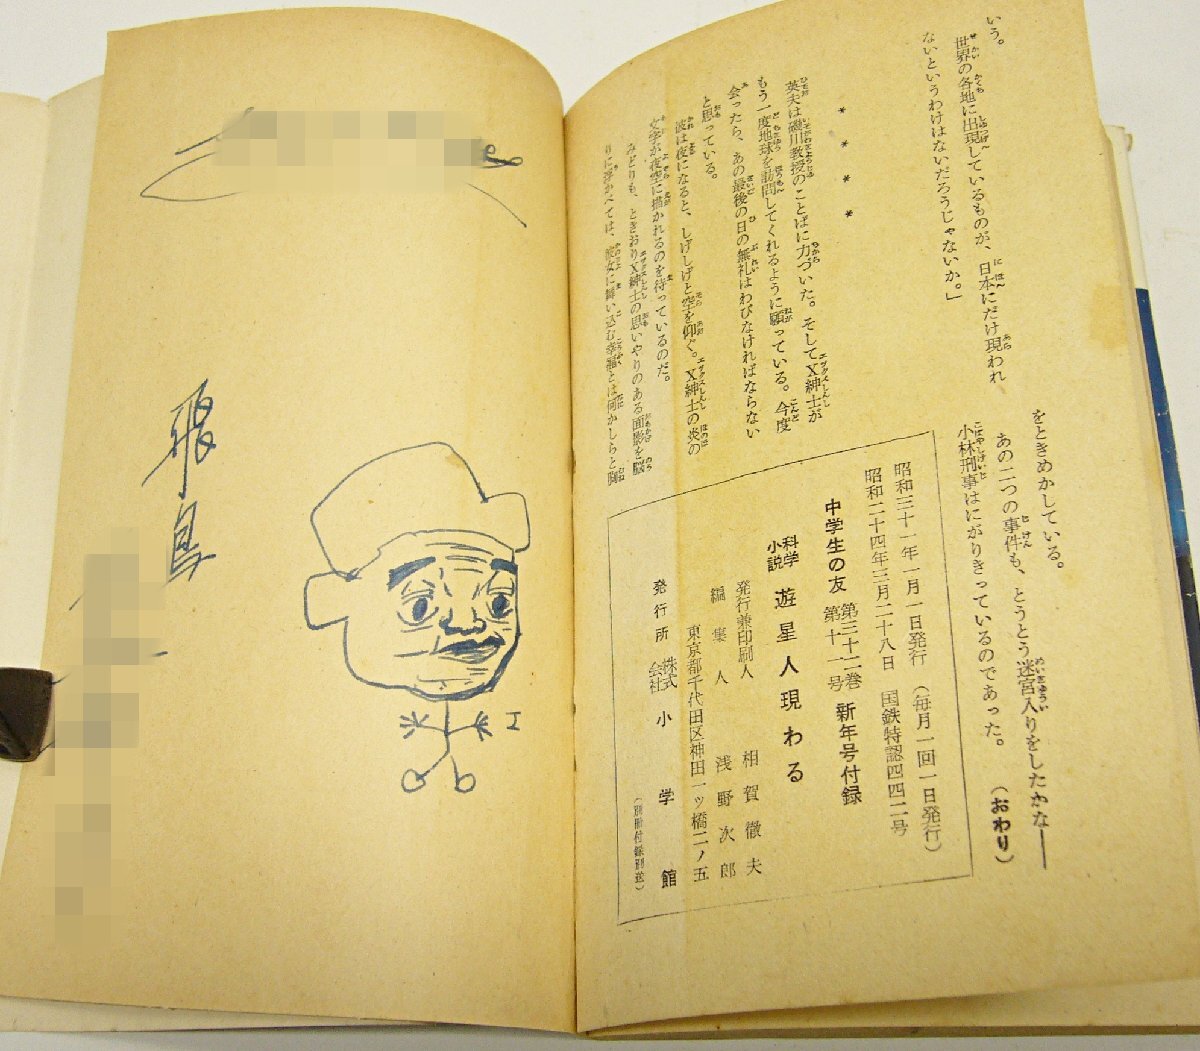 いう。
世界の各地に出現しているものが、日本にだけ現われ
ないというわけはないだろうじゃないか。」
＊　＊　＊　＊
英夫は磯川教授のことばに力づいた。そしてX紳士が
もう一度地球を訪問してくれるように願っている。今度
会ったら、あの最後の日の無礼はわびなければならない
と思っている。
彼は夜になると、しげしげと空を仰ぐ。X紳士の炎の
文字が夜空に描かれるのを待っているのだ。
みどりも、ときおりX紳士の思いやりのある面影を脳
りに浮かべては、彼女に舞い込む幸福とは何かしらと胸
をときめかしている。
あの二つの事件も、とうとう迷宮入りをしたかな――
小林刑事はにがりきっているのであった。
（おわり）
昭和三十一年一月一日発行（毎月一回一日発行）
昭和二十四年三月二十八日　国鉄特認四四二号
中学生の友　第三十二巻第十一号　新年号付録
科学小説　遊星人現わる
発行兼印刷人　相賀徹夫
編集人　浅野次郎
東京都千代田区神田一ッ橋二ノ五
発行所　株式会社　小学館
（別冊付録別送）
飛鳥